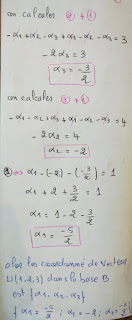 on calcules ② + ①
-α1+α2-α3+α1-α2-α3=3
-2α3=3
α3=-3/2
on calcules ② + ①
-α1-α2+α3+α1-α2-α3=4
2α2=4
α2=-2
⇔ α1-(-2)-(-3/2)=1
α1+2+3/2=1
α1=1-2-3/2
α1=-5/2
alors les coordonné de vecteur
U(1,2,3) dans la base B
est {α1, α2, α3}
{α1=-5/2; α2=-2; α3=-3/2}